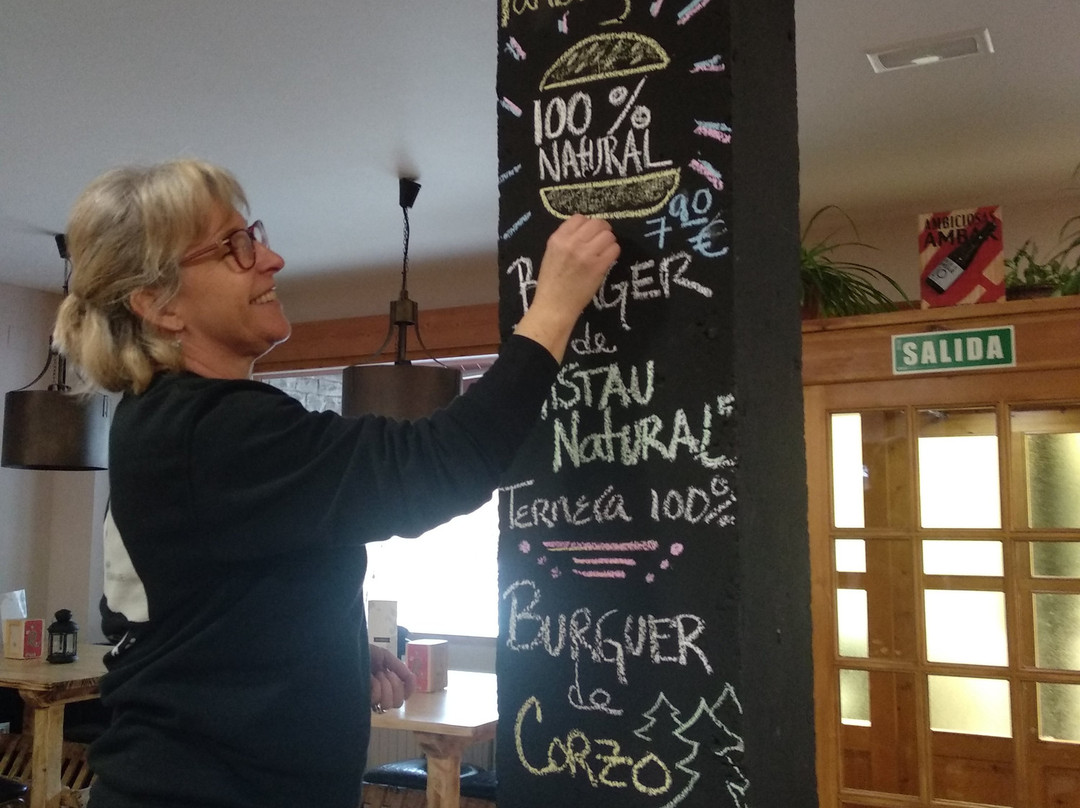 100 %
NATURAL
7,90 €
BURGER
de
PISTAU
NatURAL
TERNERA 100%
BURGUER
de
CORZO
AMBICIOSAS
AMBAR
SALIDA